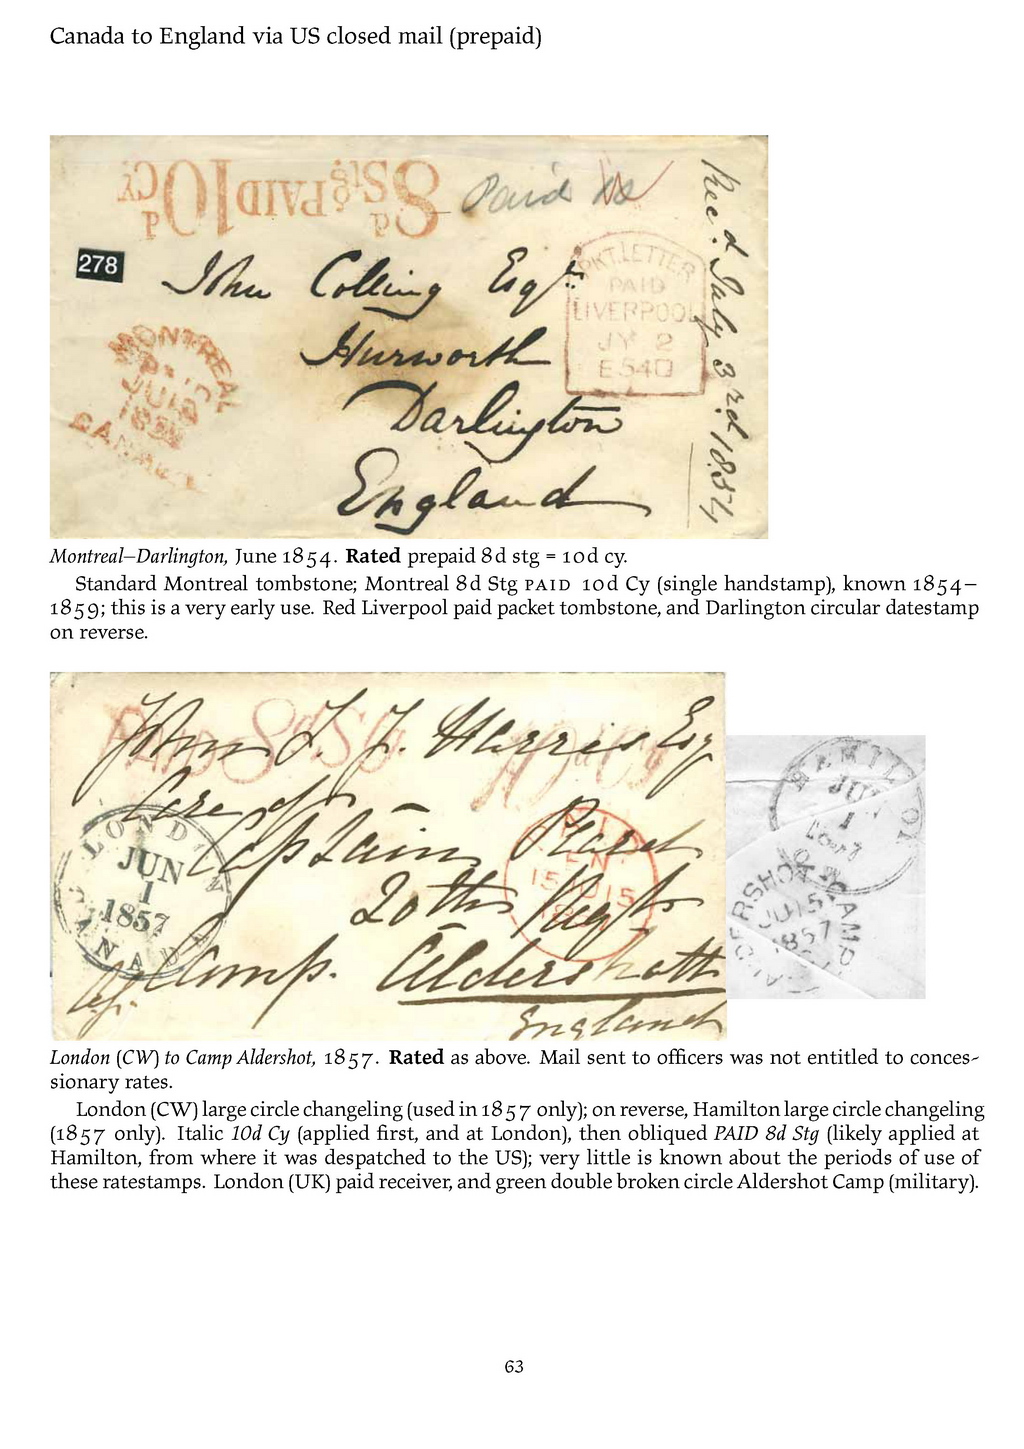 Canada to England via US closed mail (prepaid)
8d Stg PAID 10d Cy
Paid
278
John Colling Esqr.
Hurworth
Darlington
England
PKT. LETTER
PAID
LIVERPOOL
JY 2
E540
Rec.d July 3rd 1854
MONTREAL
JU
CANADA
Montreal–Darlington, June 1854. Rated prepaid 8d stg = 10d cy.
Standard Montreal tombstone; Montreal 8d Stg PAID 10d Cy (single handstamp), known 1854–
1859; this is a very early use. Red Liverpool paid packet tombstone, and Darlington circular datestamp
on reverse.
PAID 8d Stg 10d Cy
John L. J. Harris Esq
Care of
Captain
20th Regt
Camp. Aldershott
England
LONDON
JUN
1
1857
CANADA
PAID
EN
15 JU 15
HAMILTON
JUN
1
1857
ALDERSHOT CAMP
JU 15
1857
London (CW) to Camp Aldershot, 1857. Rated as above. Mail sent to officers was not entitled to conces-
sionary rates.
London (CW) large circle changeling (used in 1857 only); on reverse, Hamilton large circle changeling
(1857 only). Italic 10d Cy (applied first, and at London), then obliqued PAID 8d Stg (likely applied at
Hamilton, from where it was despatched to the US); very little is known about the periods of use of
these ratestamps. London (UK) paid receiver, and green double broken circle Aldershot Camp (military).
63